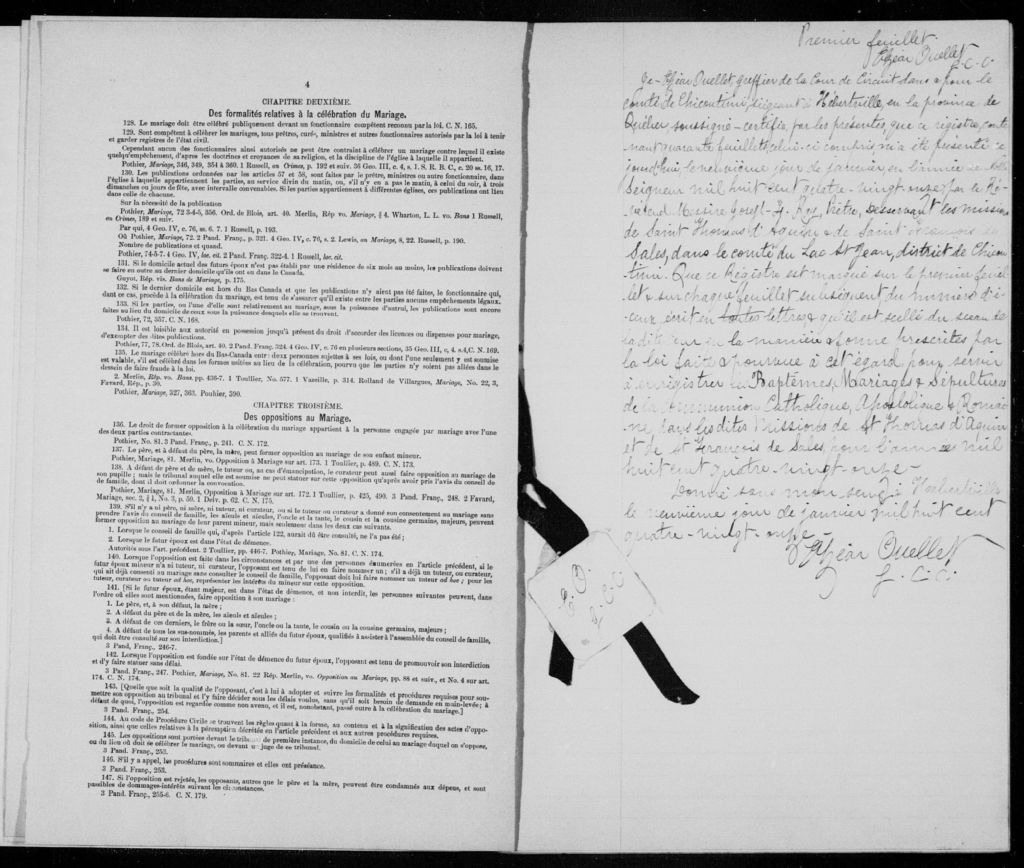 4
CHAPITRE DEUXIÈME.
Des formalités relatives à la célébration du Mariage.
128. Le mariage doit être célébré publiquement devant un fonctionnaire compétent reconnu par la loi. C. N. 165.
129. Sont compétents à célébrer les mariages, tous prêtres, curés, ministres et autres fonctionnaires autorisés par la loi à tenir
et garder registres de l'état civil.
Cependant aucun des fonctionnaires ainsi autorisés ne peut être contraint à célébrer un mariage contre lequel il existe
quelqu'empêchement, d'après les doctrines et croyances de sa religion, et la discipline de l'église à laquelle il appartient.
Pothier, Mariage, 346, 349, 354 à 360. 1 Russell, on Crimes, p. 192 et suiv. 36 Geo. III, c. 4, s. 1. S. R. B. C., c. 20 ss. 16, 17.
130. Les publications ordonnées par les articles 57 et 58, sont faites par le prêtre, ministre ou autre fonctionnaire, dans
l'église à laquelle appartiennent les parties, au service divin du matin, ou, s'il n'y en a pas le matin, à celui du soir, à trois
dimanches ou jours de fête, avec intervalle convenables. Si les parties appartiennent à différentes églises, ces publications ont lieu
dans celle de chacune.
Sur la nécessité de la publication
Pothier, Mariage, 72 3-4-5, 356. Ord. de Blois, art. 40. Merlin, Rép vo. Mariage, § 4. Wharton, L. L. vo. Bans 1 Russell,
on Crimes, 189 et suiv.
Par qui, 4 Geo. IV, c. 76, ss. 6, 7. 1 Russell, p. 193.
Où Pothier, Mariage, 72. 2 Pand. Franç., p. 321. 4 Geo. IV, c. 76, s. 2. Lewis, on Mariage, 8, 22. Russell, p. 190.
Nombre de publications et quand.
Pothier, 74-5-7. 4 Geo. IV, loc. cit. 2 Pand. Franç. 322-4. 1 Russell, loc. cit.
131. Si le domicile actuel des futurs époux n'est pas établi par une résidence de six mois au moins, les publications doivent
se faire en outre au dernier domicile qu'ils ont eu dans le Canada.
Guyot, Rép. vis. Bans de Mariage, p. 175.
132. Si le dernier domicile est hors du Bas Canada et que les publications n'y aient pas été faites, le fonctionnaire qui,
dans ce cas, procède à la célébration du mariage, est tenu de s'assurer qu'il existe entre les parties aucuns empêchements légaux.
133. Si les parties, ou l'une d'elle sont relativement au mariage, sous la puissance d'autrui, les publications sont encore
faites au lieu du domicile de ceux sous la puissance desquels elle se trouvent.
Pothier, 72, 357. C. N. 168.
134. Il est loisible aux autorité en possession jusqu'à présent du droit d'accorder des licences ou dispenses pour mariage,
d'exempter des dites publications.
Pothier, 77, 78. Ord. de Blois, art. 40. 2 Pand. Franç. 324. 4 Geo. IV, c. 76 en plusieurs sections, 35 Geo. III, c. 4. s.4, C. N. 169.
135. Le mariage célébré hors du Bas-Canada entr: deux personnes sujettes à ses lois, ou dont l'une seulement y est soumise
est valable, s'il est célébré dans les formes usitées au lieu de la célébration, pourvu que les parties n'y soient pas allées dans le
dessein de faire fraude à la loi.
2. Merlin, Rép. vo. Bans, pp. 436-7. 1 Toullier, No. 577. 1 Vazeille, p. 314. Rolland de Villargues, Mariage, No. 22, 3,
Favard, Rép., p. 30.
Pothier, Mariage, 327, 363. Pouhier, 590.
CHAPITRE TROISIÈME.
Des oppositions au Mariage.
136. Le droit de former opposition à la célébration du mariage appartient à la personne engagée par mariage avec l'une
des deux parties contractantes.
Pothier, No. 81. 3 Pand. Franç., p. 241. C. N. 172.
137. Le père, et à défaut du père, la mère, peut former opposition au mariage de son enfant mineur.
Pothier, Mariage, 81. Merlin, vo. Opposition à Mariage sur art. 173. 1 Toullier, p. 489. C. N. 173.
138. A défaut de père et de mère, le tuteur ou, au cas d'émancipation, le curateur peut aussi faire opposition au mariage de
son pupille ; mais le tribunal auquel elle est soumise ne peut statuer sur cette opposition qu'après avoir pris l'avis du conseil de
famille, dont il doit ordonner la convocation.
Pothier, Mariage, 81. Merlin, Opposition à Mariage sur art. 172. 1 Toullier, p. 425, 490. 3 Pand. Franç., 248. 2 Favard,
Mariage, sec. 2, § 1, No. 3, p. 59. 1 Delv. p. 62. C. N. 175.
139. S'il n'y a ni père, ni mère, ni tuteur, ni curateur, ou si le tuteur ou curateur a donné son consentement au mariage sans
prendre l'avis du conseil de famille, les aïeuls et aïeules, l'oncle et la tante, le cousin et la cousine germains, majeurs, peuvent
former opposition au mariage de leur parent mineur, mais seulement dans les deux cas suivants.
1. Lorsque le conseil de famille qui, d'après l'article 122, aurait dû être consulté, ne l'a pas été ;
2. Lorsque le futur époux est dans l'état de démence.
Autorités sous l'art. précédent. 2 Toullier, pp. 446-7. Pothier, Mariage, No. 81. C. N. 174.
140. Lorsque l'opposition est faite dans les circonstances et par une des personnes énumérées en l'article précédent, si le
futur époux mineur n'a ni tuteur, ni curateur, l'opposant est tenu de lui en faire nommer un ; s'il a déjà un tuteur, ou curateur,
qui ait déjà consenti au mariage sans consulter le conseil de famille, l'opposant doit lui faire nommer un tuteur ad hoc ; pour les
tuteur, curateur ou tuteur ad hoc, représenter les intérêts du mineur sur cette opposition.
141. [Si le futur époux, étant majeur, est dans l'état de démence, et non interdit, les personnes suivantes peuvent, dans
l'ordre où elles sont mentionnées, faire opposition à son mariage :
1. Le père, et, à son défaut, la mère ;
2. A défaut du père et de la mère, les aïeuls et aïeules ;
3. A défaut de ces derniers, le frère ou la sœur, l'oncle ou la tante, le cousin ou la cousine germains, majeurs ;
4. A défaut de tous les sus-nommés, les parents et alliés du futur époux, qualifiés à assister à l'assemblée du conseil de famille,
qui doit être consulté sur son interdiction.]
3 Pand. Franç., 246-7.
142. Lorsque l'opposition est fondée sur l'état de démence du futur époux, l'opposant est tenu de promouvoir son interdiction
et d'y faire statuer sans délai.
3 Pand. Franç., 247. Pothier, Mariage, No. 81. 22 Rép. Merlin, vo. Opposition au Mariage, pp. 88 et suiv., et No. 4 sur art.
174. C. N. 174.
143. [Quelle que soit la qualité de l'opposant, c'est à lui à adopter et suivre les formalités et procédures requises pour sou-
mettre son opposition au tribunal et l'y faire décider sous les délais voulus, sans qu'il soit besoin de demande en main-levée ; à
défaut de quoi, l'opposition est regardée comme non avenu, et il est, nonobstant, passé outre à la célébration du mariage.]
3 Pand. Franç., 254.
144. Au code de Procédure Civile se trouvent les règles quant à la forme, au contenu et à la signification des actes d'oppo-
sition, ainsi que celles relatives à la péremption décrétée en l'article précédent et aux autres procédures requises.
145. Les oppositions sont portées devant le tribunal de première instance, du domicile de celui au mariage duquel on s'oppose,
ou du lieu où doit se célébrer le mariage, ou devant un juge de ce tribunal.
3 Pand. Franç., 253.
146. S'il y a appel, les procédures sont sommaires et elles ont préséance.
3 Pand. Franç., 253.
147. Si l'opposition est rejetée, les opposants, autres que le père et la mère, peuvent être condamnés aux dépens, et sont
passibles de dommages-intérêts suivant les circonstances.
3 Pand. Franç., 255-6. C. N. 179.
Premier feuillet
Elzéar Ouellet
G. C. C.
Je Elzéar Ouellet, greffier de la Cour de Circuit dans & pour le
comté de Chicoutimi, siégeant à Hébertville, en la province de
Québec, soussigné certifie par les présentes, que ce registre, conte
nant quarante feuillets, celui-ci compris, m'a été présenté ce
jourd'hui, le neuvième jour de janvier, en l'année de Notre
Seigneur mil huit cent quatre-vingt onze, par le Ré-
vérend Messire Joseph Roy, Prêtre, desservant les missions
de Saint Thomas d'Aquin & de Saint François de
Sales, dans le comté du Lac St Jean, district de Chicou
timi. Que ce Régistre est marqué sur le premier feuil
let & sur chaque feuillet subséquent du numéro d'i-
ceux, écrit en toutes lettres & qu'il est scellé du sceau de
la dite cour en la manière & forme prescrites par
la loi faite & pourvue à cet égard, pour servir
à enregistrer les Baptêmes, Mariages & Sépultures
de la communion Catholique, Apostolique & Romai
ne, dans les dites Missions de St Thomas d'Aquin
et de St François de Sales, pour l'année mil
huit cent quatre-vingt-onze-
Donné sous mon seing à Hébertville
le neuvième jour de janvier mil huit cent
quatre-vingt-onze
Elzéar Ouellet
G. C. C.
E. O.
G. C. C.